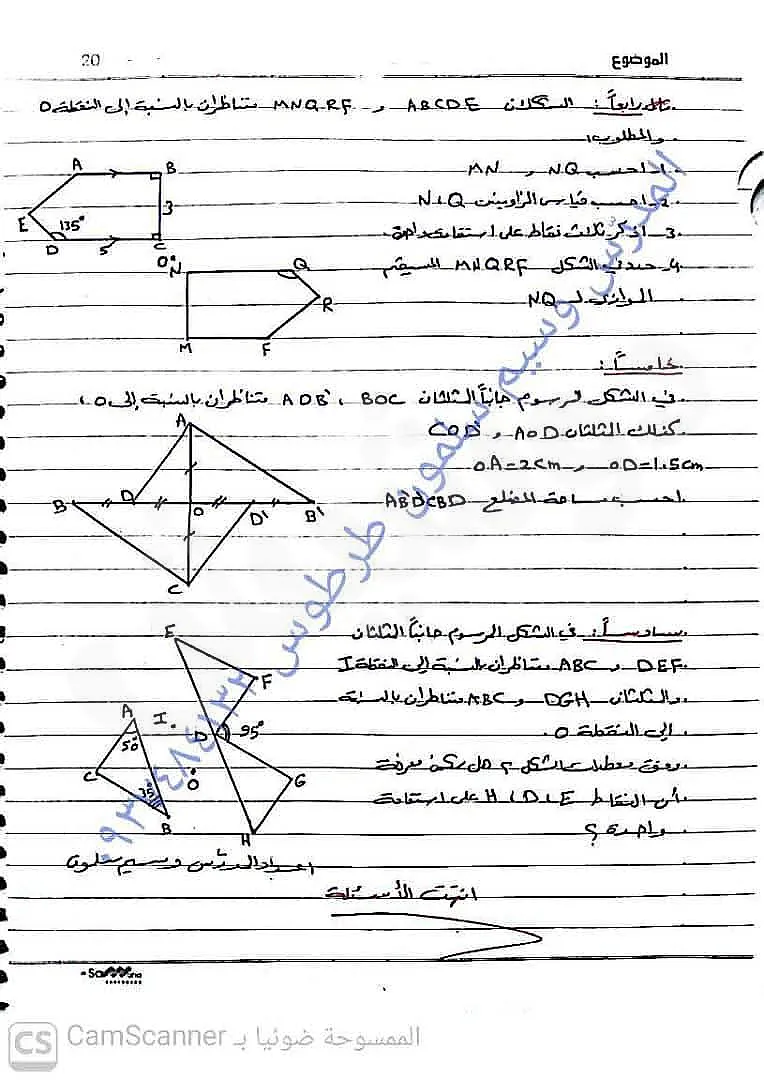 الموضوع
20
رابعاً: الشكلان ABCDE و MNQRF متناظران بالنسبة إلى النقطة O
والمطلوب:
1- احسب NQ و MN
2- احسب قياس الزاويتين Q، N
3- اذكر ثلاث نقاط على استقامة واحدة.
4- حدد في الشكل MNQRF المستقيم
الموازي لـ NQ
A B
E 135° 3
D 5 C
O N Q
R
M F
خامساً:
في الشكل المرسوم جانباً المثلثان BOC، AOB' متناظران بالنسبة إلى O،
كذلك المثلثان AOD و COD'
OA=2cm و OD=1.5cm
احسب مساحة المضلع AB'D'CBD
A
B D O D' B'
C
سادساً: في الشكل المرسوم جانباً المثلثان
DEF و ABC متناظران بالنسبة إلى النقطة I
والمثلثان DGH و ABC متناظران بالنسبة
إلى النقطة O.
وفق معطيات الشكل؟ هل يمكن معرفة
أن النقاط H، D، E على استقامة
واحدة؟
E
F
A I. D 95°
50°
C O G
35°
B H
اعداد المدرّس وسيم سلمون
انتهت الأسئلة
المدرّس وسيم سلمون طرطوس
CS CamScanner الممسوحة ضوئيا بـ